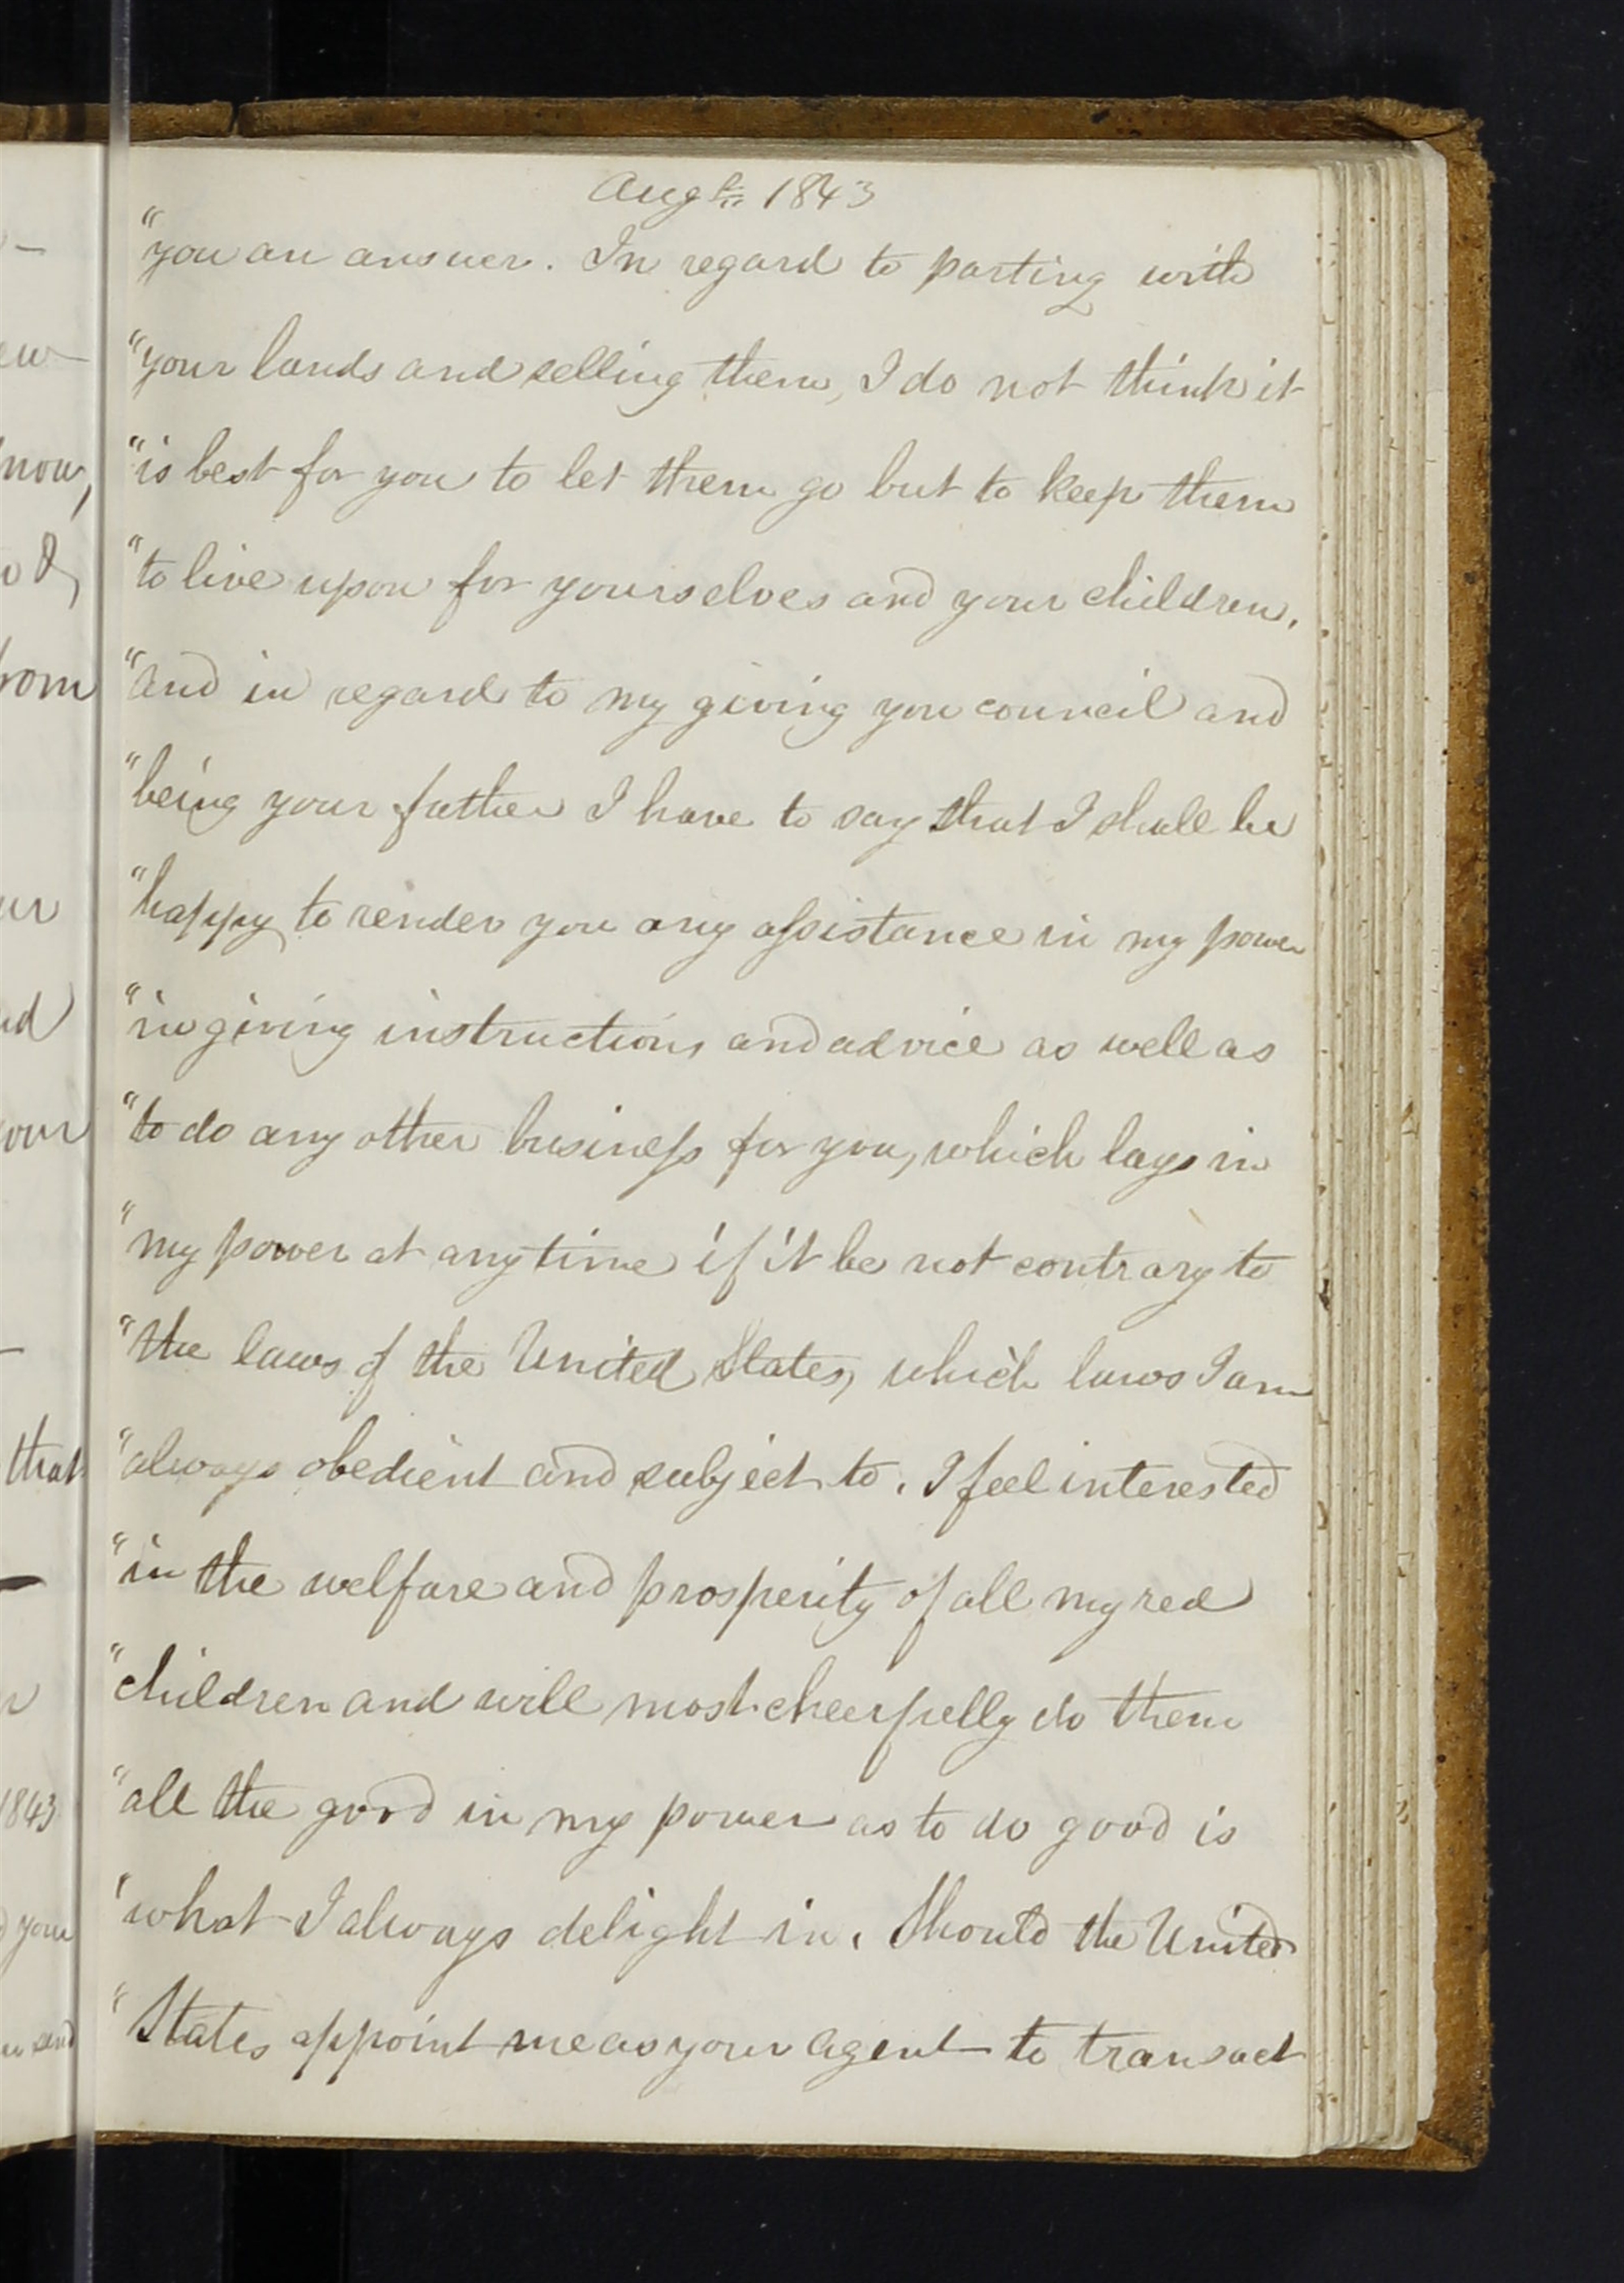 Augt 1843
"you an answer. In regard to parting with
"your lands and selling them, I do not think it
"is best for you to let them go but to keep them
"to live upon for yourselves and your children,
"and in regard to my giving you council and
"being your father I have to say that I shall be
"happy to render you any assistance in my power
"in giving instructions and advice as well as
"to do any other business for you, which lays in
"my power at any time if it be not contrary to
"the laws of the United States, which laws I am
"always obedient and subject to. I feel interested
"in the welfare and prosperity of all my red
"children and will most cheerfully do them
"all the good in my power as to do good is
"what I always delight in. Should the United
"States appoint me as your agent to transact
now,
that
1843
you